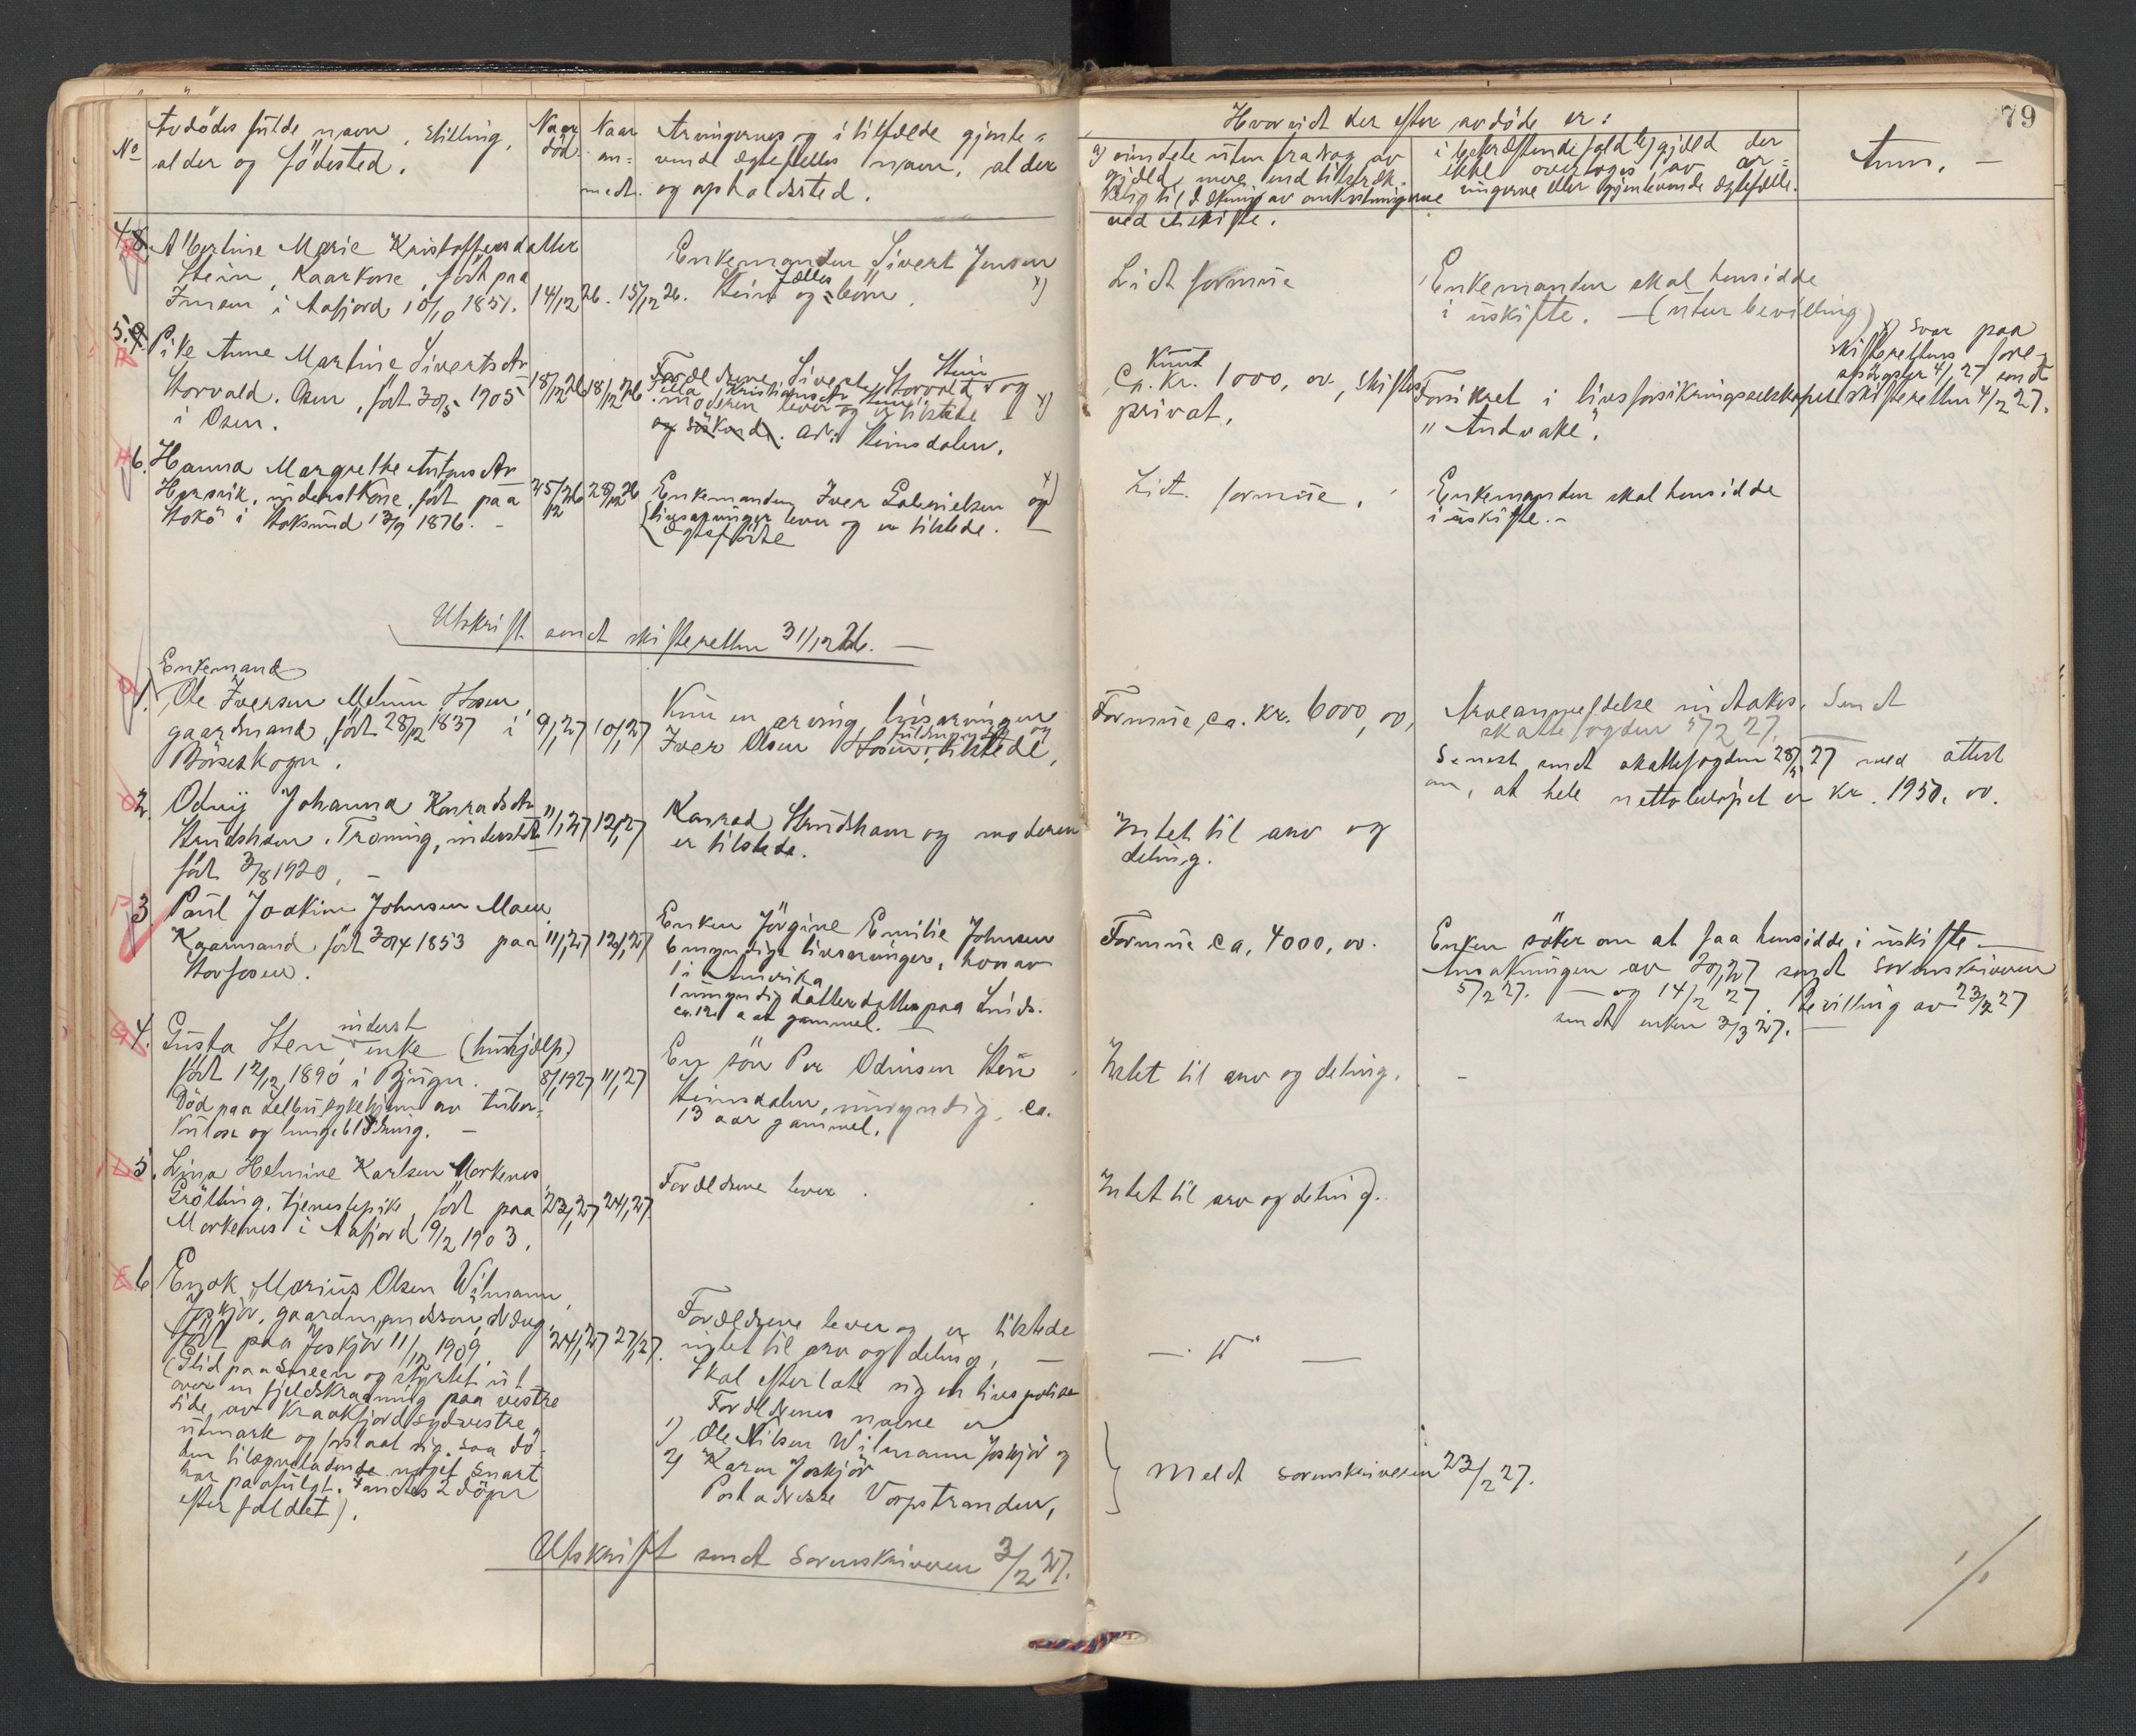 79
No
Avdödes fulde navn, stilling,
alder og födested.
Naar
död.
Naar
an-
meldt.
Arvingernes og i tilfælde gjenle-
vende ægtefælles navn, alder
og opholdssted.
Hvorvidt der efter avdöde er:
a) eiendele uten fradrag av
gjæld, mere end tilstræk-
kelig til dækning av omkostningerne
ved et skifte.
i bekræftende fald b) gjæld der
ikke overtages av ar-
vingerne eller gjenlevende ægtefælle.
Anm. —
4.
Albertine Marie Kristoffersdatter
Stein, Kaarkone, födt paa
i Aafjord 10/10 1851.
14/12 26.
15/12 26.
Enkemanden Sivert Jensen
Stein og fælles börn. x)
Lidt formue
Enkemanden skal hensidde
i uskifte. — (uten bevilling)
5.
Pike Anne Martine Sivertsdtr
Storvold, Osen, födt 30/5 1905
i Osen.
18/12 26
18/12 26
Forældrene Sivert Storvold og
moderen lever og er tilstede x)
og söskende. adr. Steinsdalen.
Kund
Ca. Kr. 1000,00, skiftes
privat.
Forsikret i livsforsikringsselskapet
"Andvake".
x) Svar paa
skifterettens fore-
spörgsler 4/1 27 sendt
skifteretten 4/2 27.
6.
Hanna Margrethe Antonsdtr
Harsvik, inderstkone, födt paa
Stokö i Stoksund 13/9 1876. —
25/12 26
28/12 26
Enkemanden Iver Gabrielsen og x)
livsarvinger lever og er tilstede. —
ægtefödte
Lidt formue.
Enkemanden skal hensidde
i uskifte. —
Utskrift sendt skifteretten 31/12 26. —
1.
Enkemand
Ole Iversen Melum, Hosen,
gaardmand, födt 28/12 1837 i
Börseskogn.
9/1 27
10/1 27
Kun en arving, livsarvingen
Iver Olsen Hosen, fuldmyndig og
tilstede.
Formue ca. kr. 6000,00,
Arveanmeldelse mottokes. Sendt
skattefogden 5/2 27.
Senest sendt skattefogden 28/ 27 med attest
om, at hele nettobelöpet er kr. 1950,00.
2.
Odny Johanna Konradsdtr
Strudshavn. Træning, inderstdtr
födt 3/8 1920. —
11/1 27
12/1 27
Konrad Strudshavn og moderen
er tilstede.
Intet til arv og
deling.
3
Paul Joakim Johnsen Moen
Kaarmand, födt 30/4 1853 paa
Storfosen.
11/1 27
12/1 27
Enken Jörgine Emilie Johnsen
6 myndige livsarvinger, hvorav
1 i Amerika
1 umyndig datterdatter paa Linds.
ca. 12 aar gammel. —
Formue ca. 4000,00.
Enken söker om at faa hensidde i uskifte. —
Ansökningen av 30/1 27 sendt sorenskriveren
5/2 27. — og 14/2 27. Bevilling av 23/2 27
sendt enken 3/3 27. —
4.
Gusta Sten inderst enke (hushjælp)
födt 12/12 1890 i Bjugn.
Död paa Selbu sykehjem av tuber-
kulose og lungeblödning. —
8/1 1927
11/1 27
En sön Per Odinsen Sten
Steinsdalen, umyndig, ca.
13 aar gammel.
Intet til arv og deling. —
5.
Lina Helmine Karlsen Morkenes
Grötting, tjenestepike, födt paa
Morkenes i Aafjord 9/2 1903.
23/1 27
24/1 27
Forældrene lever.
Intet til arv og deling.
6
Enok Marius Olsen Wilmann,
Joskjör, gaardmandssön, dreng,
födt paa Joskjör 11/12 1909
(Glid paa sneen og styrtet ut-
over en fjeldskraaning paa vestre
side av Kraakfjord sydvestre
utmark og forslaat sig. Saa dö-
den tilsynelatende meget snart
har paafulgt. Fandtes 2 dögn
efter faldet).
24/1 27
27/1 27.
Forældrene lever og er tilstede
intet til arv og deling, —
Skal efterlate sig en livspolise
Forældrenes navne er
1) Ole Nilsen Wilmann Joskjör og
2) Karen Joskjör
Postadresse Vorpstranden,
— " —
Meldt sorenskriveren 23/2 27.
Utskrift sendt sorenskriveren 3/2 27.